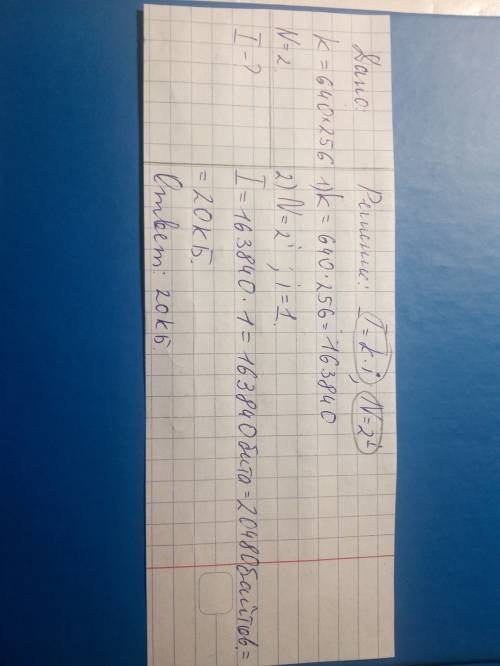 Дано:
K = 640×256
N = 2.
I - ?
Решение: I = k·i, N = 2ⁱ
1) K = 640·256 = 163840
2) N = 2ⁱ ; i = 1.
I = 163840·1 = 163840 бита = 20480 байтов. =
= 20 кБ.
Ответ: 20 кБ.